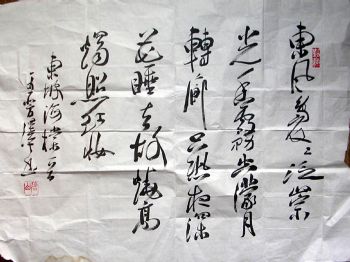 東風嫋嫋泛崇
光香霧空濛月
轉廊只恐夜深
花睡去故燒高
燭照紅妝
東坡海棠